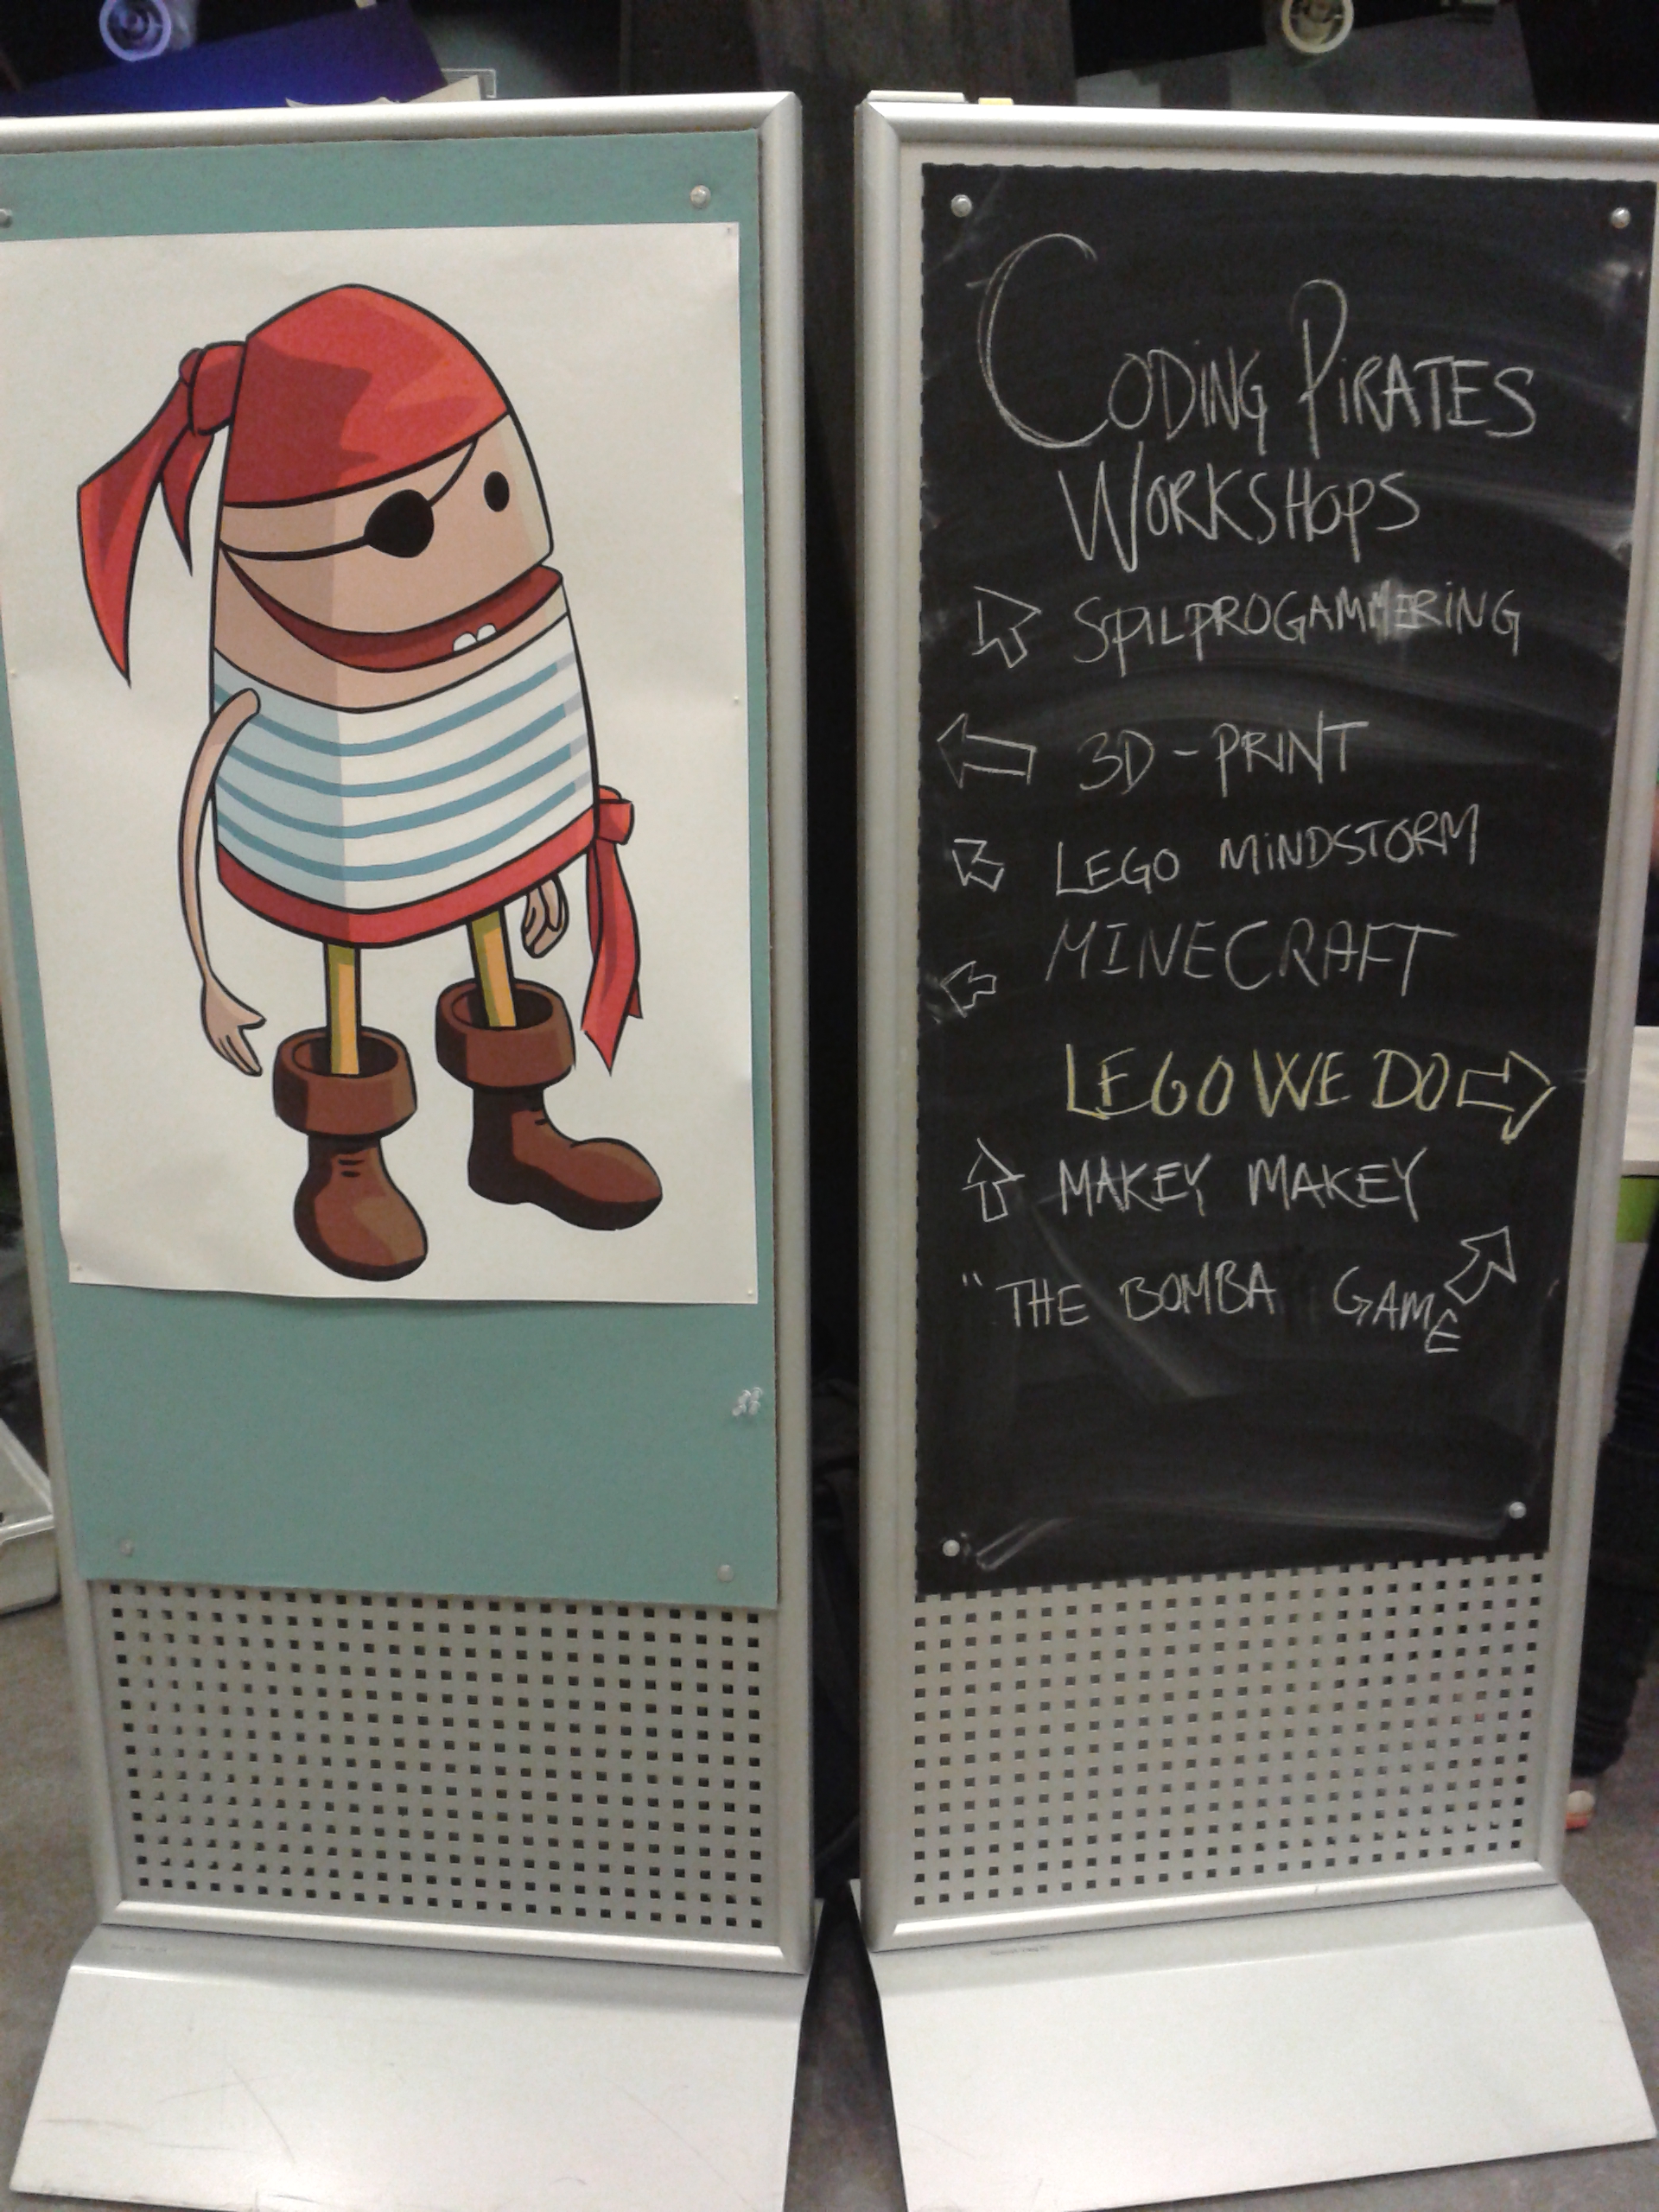 CODING PIRATES
WORKSHOPS
SPILPROGAMMERING
3D-PRINT
LEGO MINDSTORM
MINECRAFT
LEGO WE DO
MAKEY MAKEY
"THE BOMBA GAME